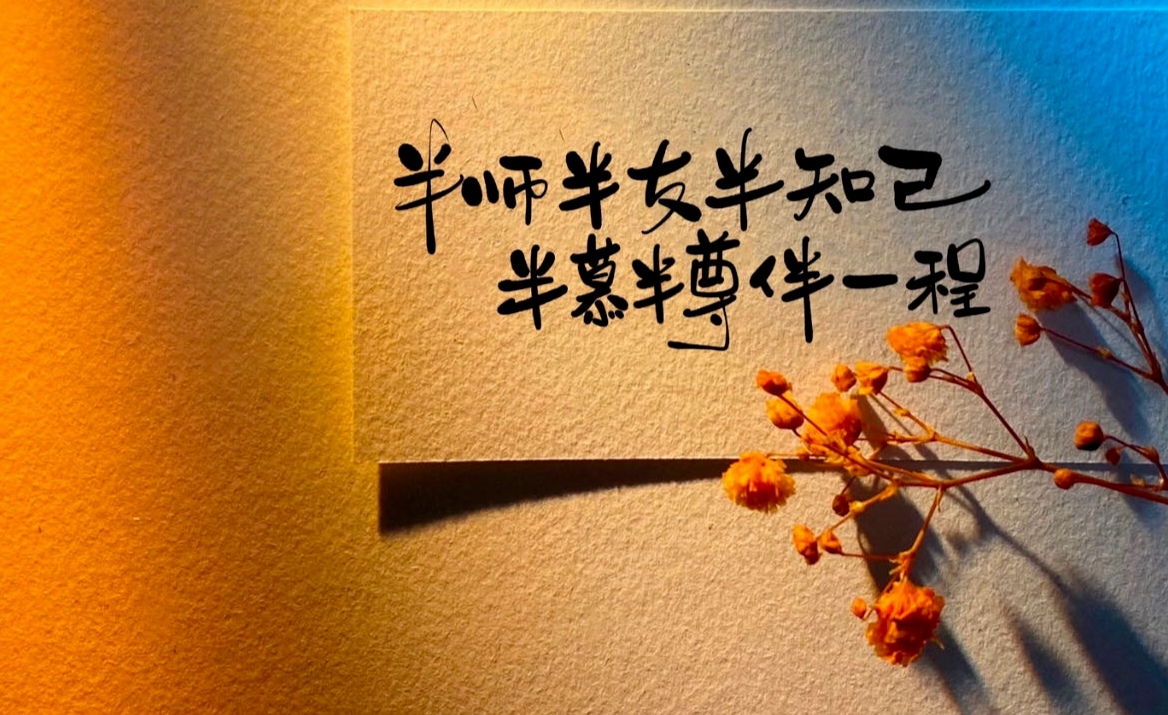 半师半友半知己
半慕半尊伴一程